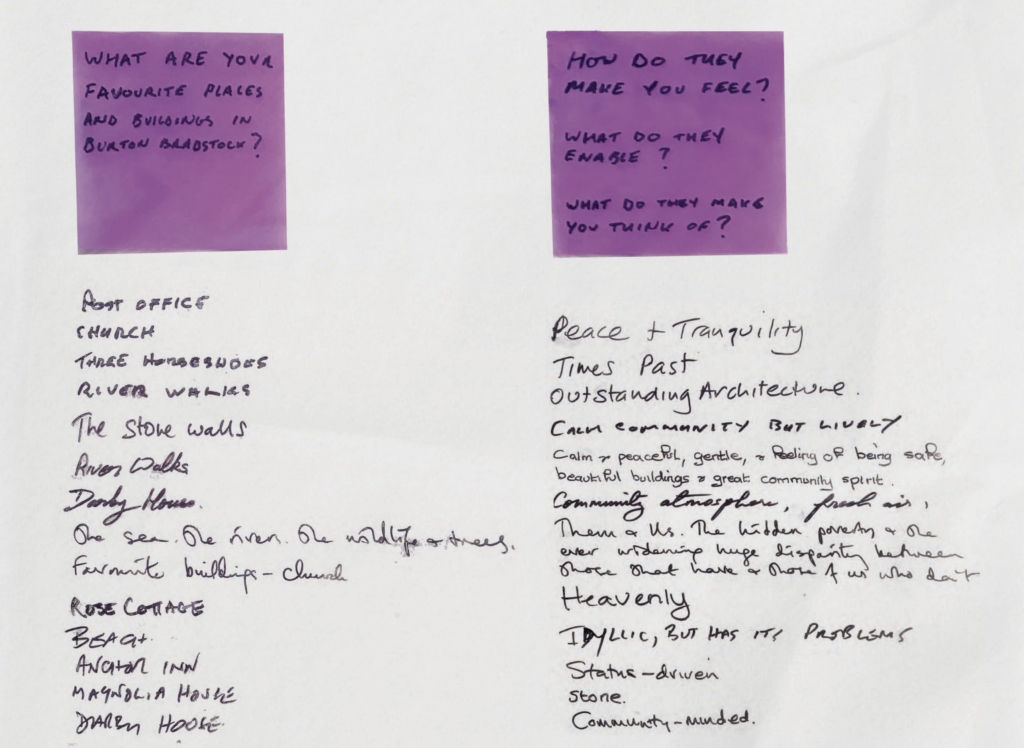 WHAT ARE YOUR
FAVOURITE PLACES
AND BUILDINGS IN
BURTON BRADSTOCK?
POST OFFICE
CHURCH
THREE HORSESHOES
RIVER WALKS
The Stone walls
River Walks
Darby House.
The sea. The river. The wildlife & trees.
Favourite buildings – church
ROSE COTTAGE
BEACH.
ANCHOR INN
MAGNOLIA HOUSE
DARBY HOUSE.
HOW DO THEY
MAKE YOU FEEL?
WHAT DO THEY
ENABLE?
WHAT DO THEY MAKE
YOU THINK OF?
Peace + Tranquility
Times Past
Outstanding Architecture.
CALM COMMUNITY BUT LIVELY
Calm & peaceful, gentle, & feeling of being safe,
beautiful buildings & great community spirit.
Community atmosphere, fresh air,
Them & Us. The hidden poverty & the
ever widening huge disparity between
those that have & those of us who don't
Heavenly
IDYLLIC, BUT HAS ITS PROBLEMS
Status-driven
Stone.
Community-minded.